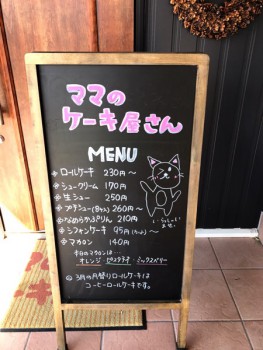 ママの
ケーキ屋さん
MENU
※ ロールケーキ 230円〜
※ シュークリーム 170円
※ 生シュー 250円
※ プチシュー(8ケ入) 260円〜
※ なめらかぷりん 210円
※ シフォンケーキ 95円(カット)〜
※ マカロン 140円
いらっしゃいませ
本日のマカロンは…
オレンジ ピスタチオ ミックスベリー
※ 3月の月替りロールケーキは
コーヒーロールケーキです。